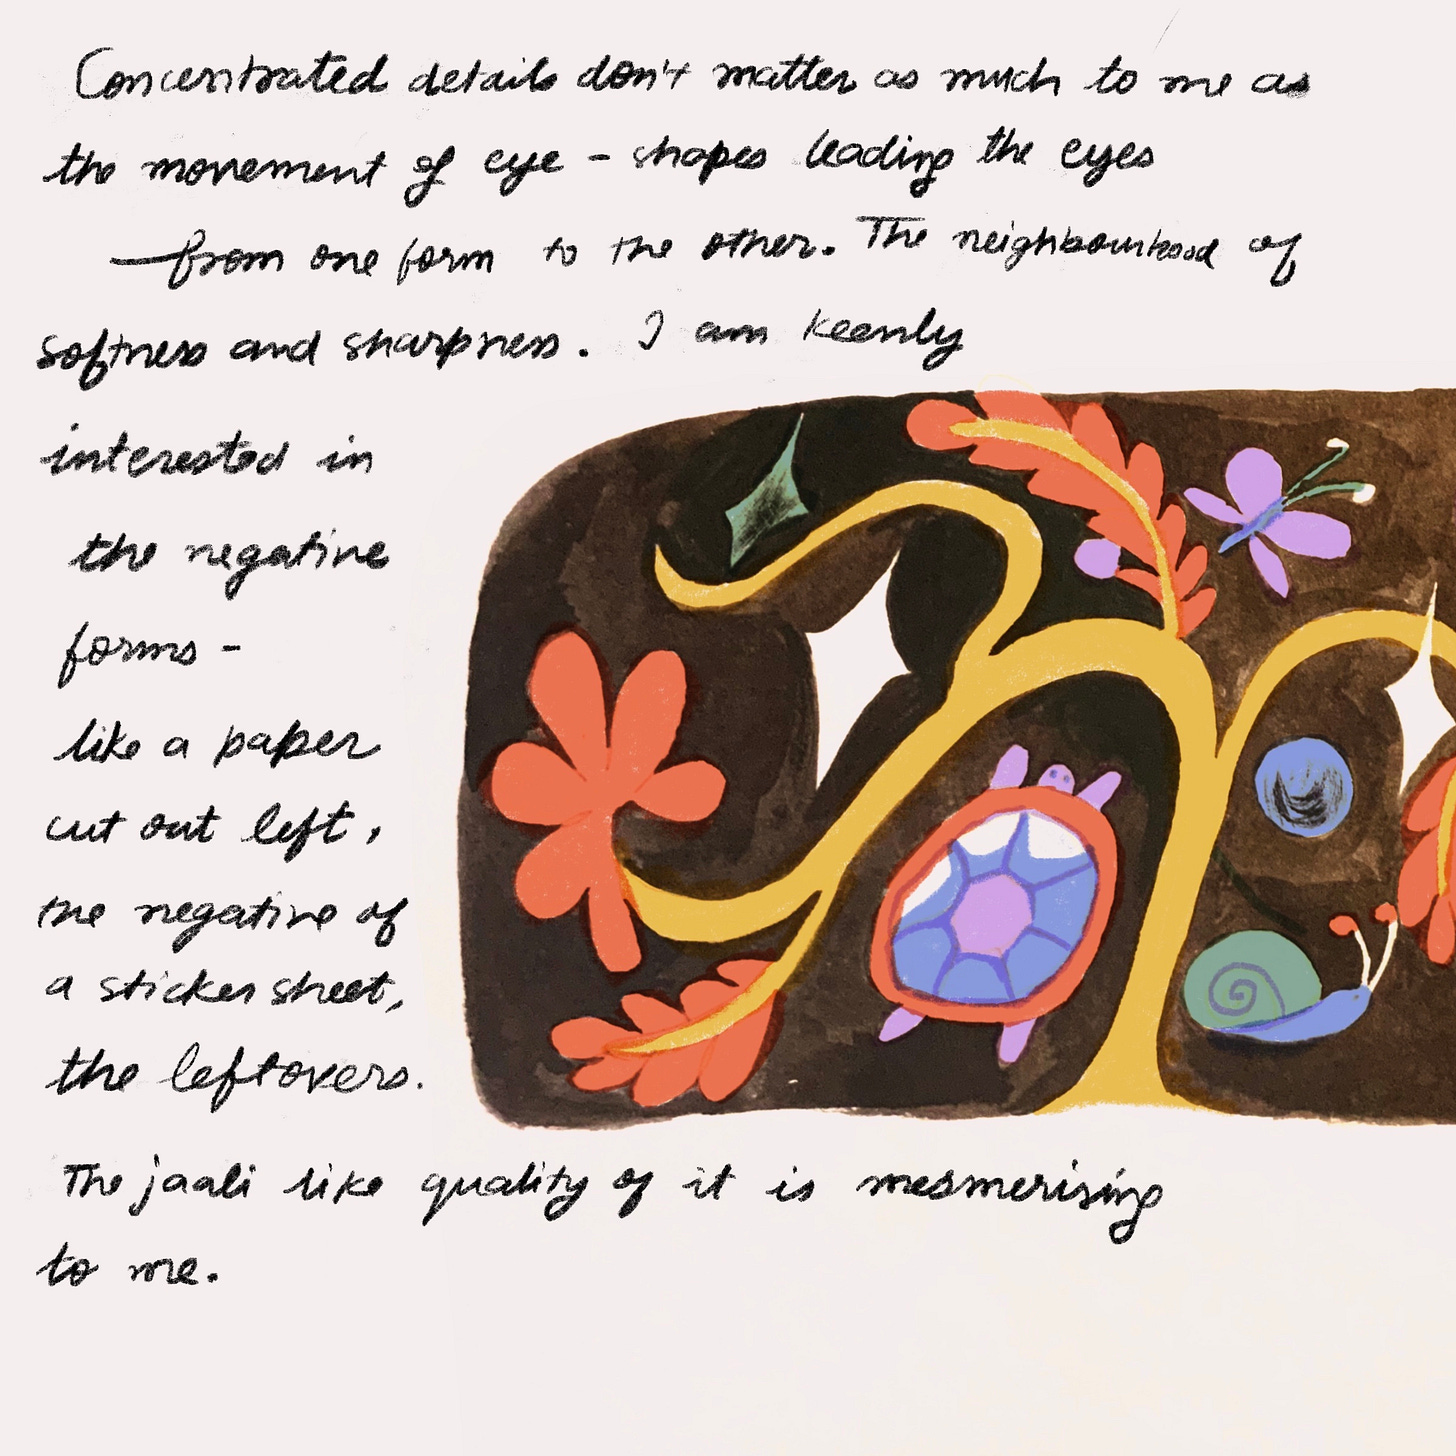 Concentrated details don't matter as much to me as
the movement of eye - shapes leading the eyes
— from one form to the other. The neighbourhood of
softness and sharpness. I am keenly
interested in
the negative
forms -
like a paper
cut out left,
the negative of
a sticker sheet,
the leftovers.
The jaali like quality of it is mesmerising
to me.